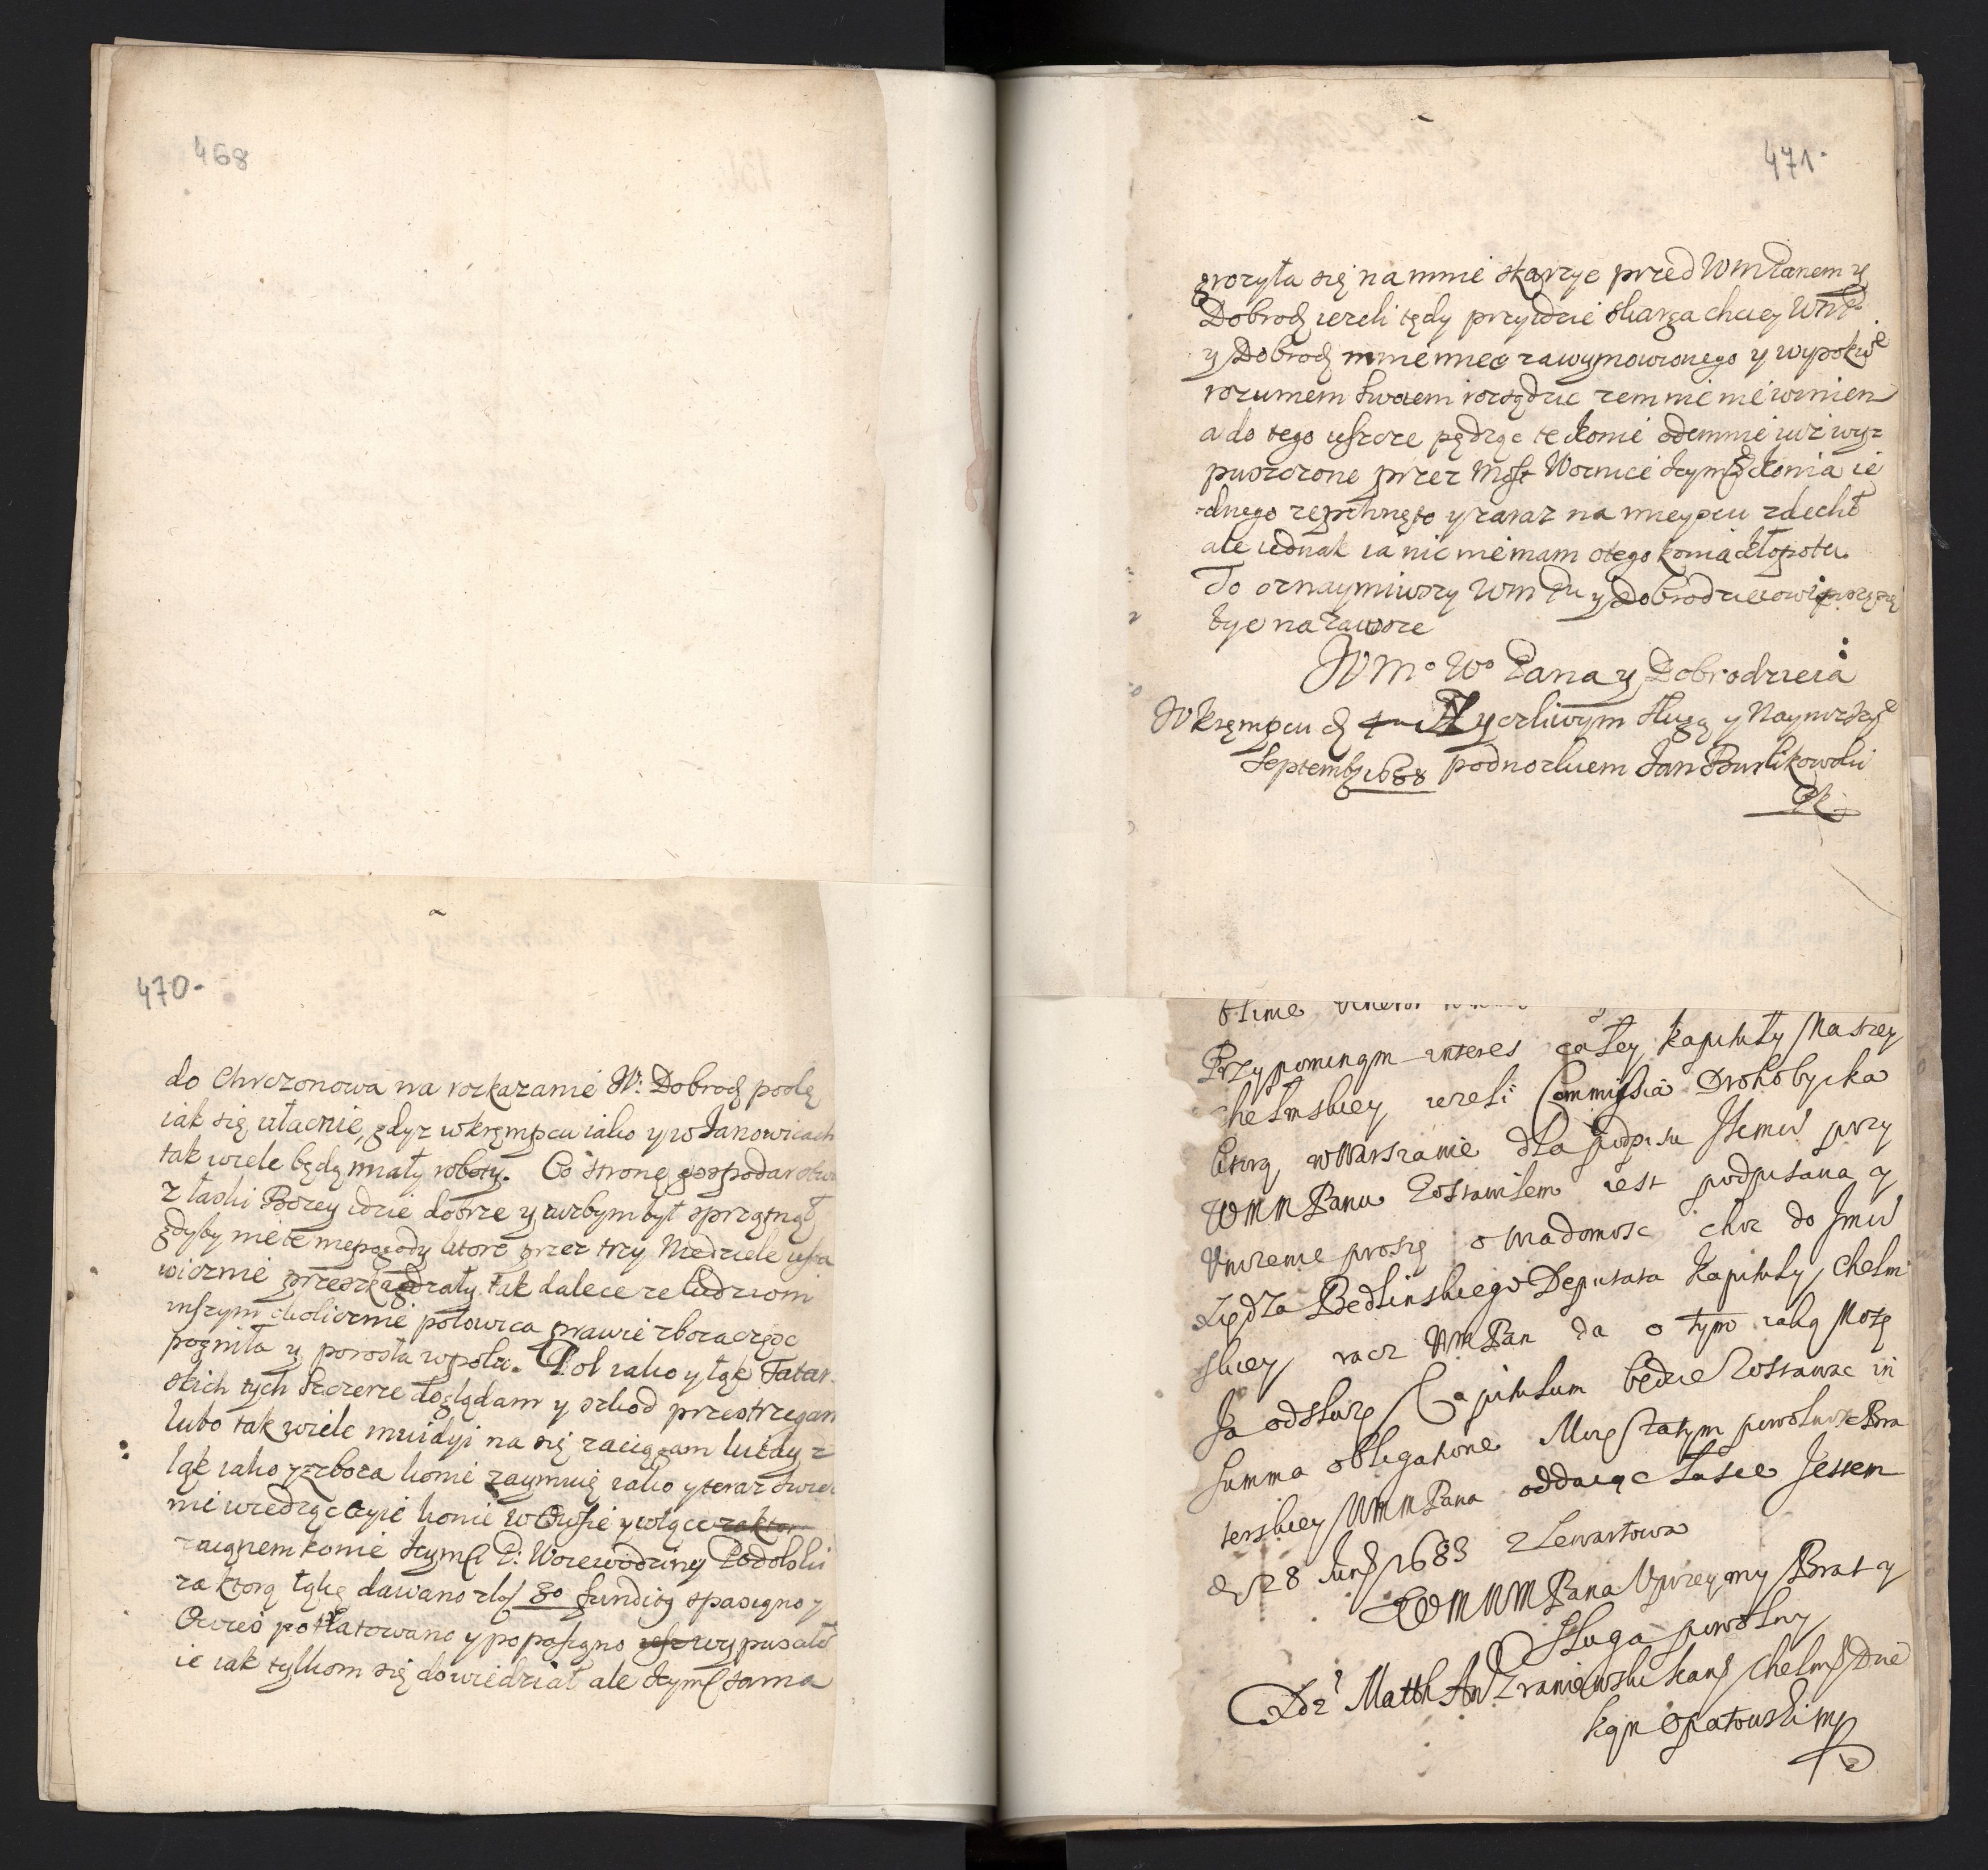 468
470.
do Chrczonowa na rozkazanie W: Dobrodz poslę
iak się ułacnie, gdyz w krzempcu iako y w Janowicach
tak wiele będą miały roboty. Co stronę gospodarstwa
z łaski Bozey idzie dobrze y iuzbym był sprzątnął
gdyby nie te niepogody ktore przez trzy Niedziele usta
wicznie przeszkadzały tak dalece ze ludziom
inszym okolicznie połowica prawie zboza
pogniła y porosła w polu. Pol iako y łąk Tatar
skich tych szczerze doglądam y szkod przestrzegam
lubo tak wiele na się zaciągam kiedy z
łąk iako y zboza konie zaymuię iako y teraz
nie wiedząc czyie konie w Owsie y włące
zaiąnem konie Jeymsci P: Woiewodziney Podolski
za ktorą łąkę dawano zło 80 funditq spasiono y
Owies potłatowano y popasiono wypuscił
ie iak tylkom się dowiedział ale Jeymsc sama
471.
groziła się na mnie skarzyc przed WmPanem y
Dobrodz iezeli tędy przyidzie skarga chciey WmP
y Dobrodz mnie miec za wymowionego y wysokie
rozumem swoiem rozsądzic zem nie nie winien
a do tego ieszcze pędząc te konie odemnie iuz wy=
puszczone przez Most Woznice Jeymsci konia ie
dnego zepchnęło y zaraz na mieyscu zdechł
ale iednak ia nic nie mam o tego konia kłopotu.
To oznaymiwszy Wm Pu y Dobrodzieiowi piszę się
byc na zawsze
WMo Wo Pana y Dobrodzieia
W krzempcu d Zyczliwym sługą y Naynizszy
Septemb 1688 podnozkiem Jan Burlikowski
Przypominam interes całey kapituły Naszey
Chełmskiey iezeli Commissia Drohobycka
ktorą w Warszawie dla podpisu Jkmci przy
WMM Panu Zostawiłem iest podpisana y
Unizenie proszę o wiadomosc choc do Jmci
Xiędza Bedlinskiego Deputata Kapituły Chełm
skiey racz WMPan da o tym taką
Ja odsłuzę Capitulum będzie Zostawac in
summa obligatione Moię zatym powolnosc Bra
terskiey WMMPana oddaiąc Łasce Jestem
d 28 Junÿ 1683 z Lewartowa
WMMMPana Uprzeymy Brat y
sługa powolny
Xdz Matth An Zraniewski kan Chelms Die
kan Opatowski mp